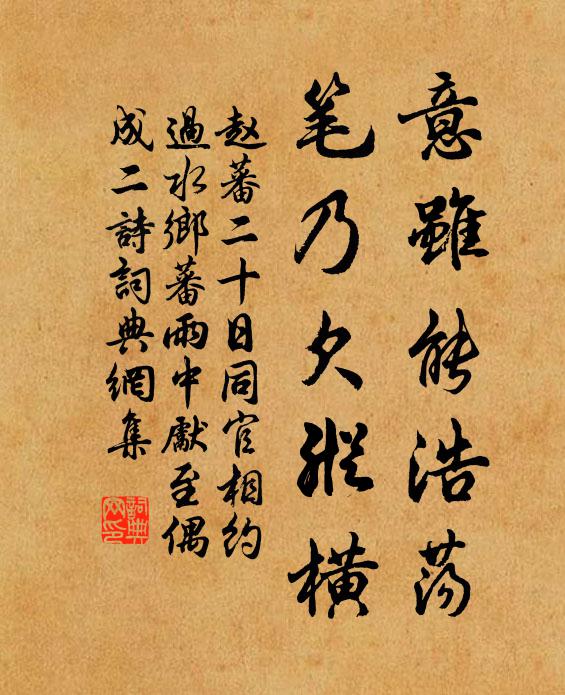 意雖能浩荡
笔乃欠縱橫
赵蕃二十日同官相约
過水鄉蕃雨中獻至偶
成二詩詞典網集
詞典
网印